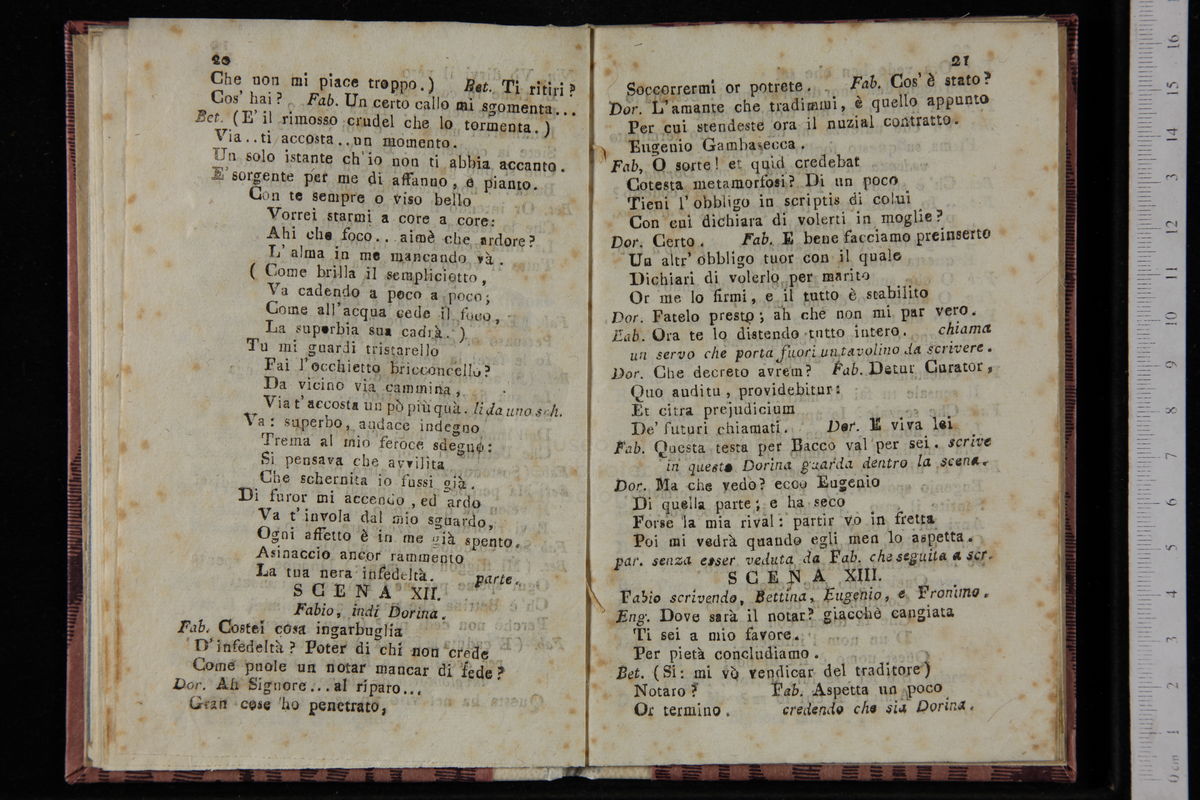 20
Che non mi piace troppo.) Bet. Ti ritiri?
Cos' hai? Fab. Un certo callo mi sgomenta...
Bet. (E' il rimosso crudel che lo tormenta.)
Via..ti accosta..un momento.
Un solo istante ch'io non ti abbia accanto.
E' sorgente per me di affanno, e pianto.
Con te sempre o viso bello
Vorrei starmi a core a core:
Ahi che foco.. aimè che ardore?
L' alma in me mancando và.
( Come brilla il sempliciotto,
Va cadendo a poco a poco;
Come all'acqua cede il foco,
La superbia sua cadrà.)
Tu mi guardi tristarello
Fai l'occhietto bricconcello?
Da vicino via cammina,
Via t'accosta un pò più quà. li da uno sch.
Va: superbo, audace indegno
Trema al mio feroce sdegno:
Si pensava che avvilita
Che schernita io fussi già.
Di furor mi accendo, ed ardo
Va t'invola dal mio sguardo,
Ogni affetto è in me già spento.
Asinaccio ancor rammento
La tua nera infedeltà. parte.
SCENA XII.
Fabio, indi Dorina.
Fab. Costei cosa ingarbuglia
D'infedeltà? Poter di chi non crede
Come puole un notar mancar di fede?
Dor. Ah Signore...al riparo...
Gran cose ho penetrato,
21
Soccorrermi or potrete. Fab. Cos' è stato?
Dor. L'amante che tradimmi, è quello appunto
Per cui stendeste ora il nuzial contratto.
Eugenio Gambasecca.
Fab, O sorte! et quid credebat
Cotesta metamorfosi? Di un poco
Tieni l' obbligo in scriptis di colui
Con cui dichiara di volerti in moglie?
Dor. Certo. Fab. E bene facciamo preinserto
Un altr' obbligo tuor con il quale
Dichiari di volerlo per marito
Or me lo firmi, e il tutto è stabilito
Dor. Fatelo presto; ah che non mi par vero.
Fab. Ora te lo distendo tutto intero. chiama
un servo che porta fuori un tavolino da scrivere.
Dor. Che decreto avrem? Fab. Detur Curator,
Quo auditu, providebitur:
Et citra prejudicium
De' futuri chiamati. Dor. E viva lei
Fab. Questa testa per Bacco val per sei. scrive
in questo Dorina guarda dentro la scena.
Dor. Ma che vedo? ecco Eugenio
Di quella parte; e ha seco
Forse la mia rival: partir vò in fretta
Poi mi vedrà quando egli men lo aspetta.
par. senza esser veduta da Fab. che seguita a scr.
SCENA XIII.
Fabio scrivendo, Bettina, Eugenio, e Fronimo.
Eng. Dove sarà il notar? giacchè cangiata
Ti sei a mio favore.
Per pietà concludiamo.
Bet. (Si: mi vò vendicar del traditore)
Notaro? Fab. Aspetta un poco
Or termino. credendo che sia Dorina.